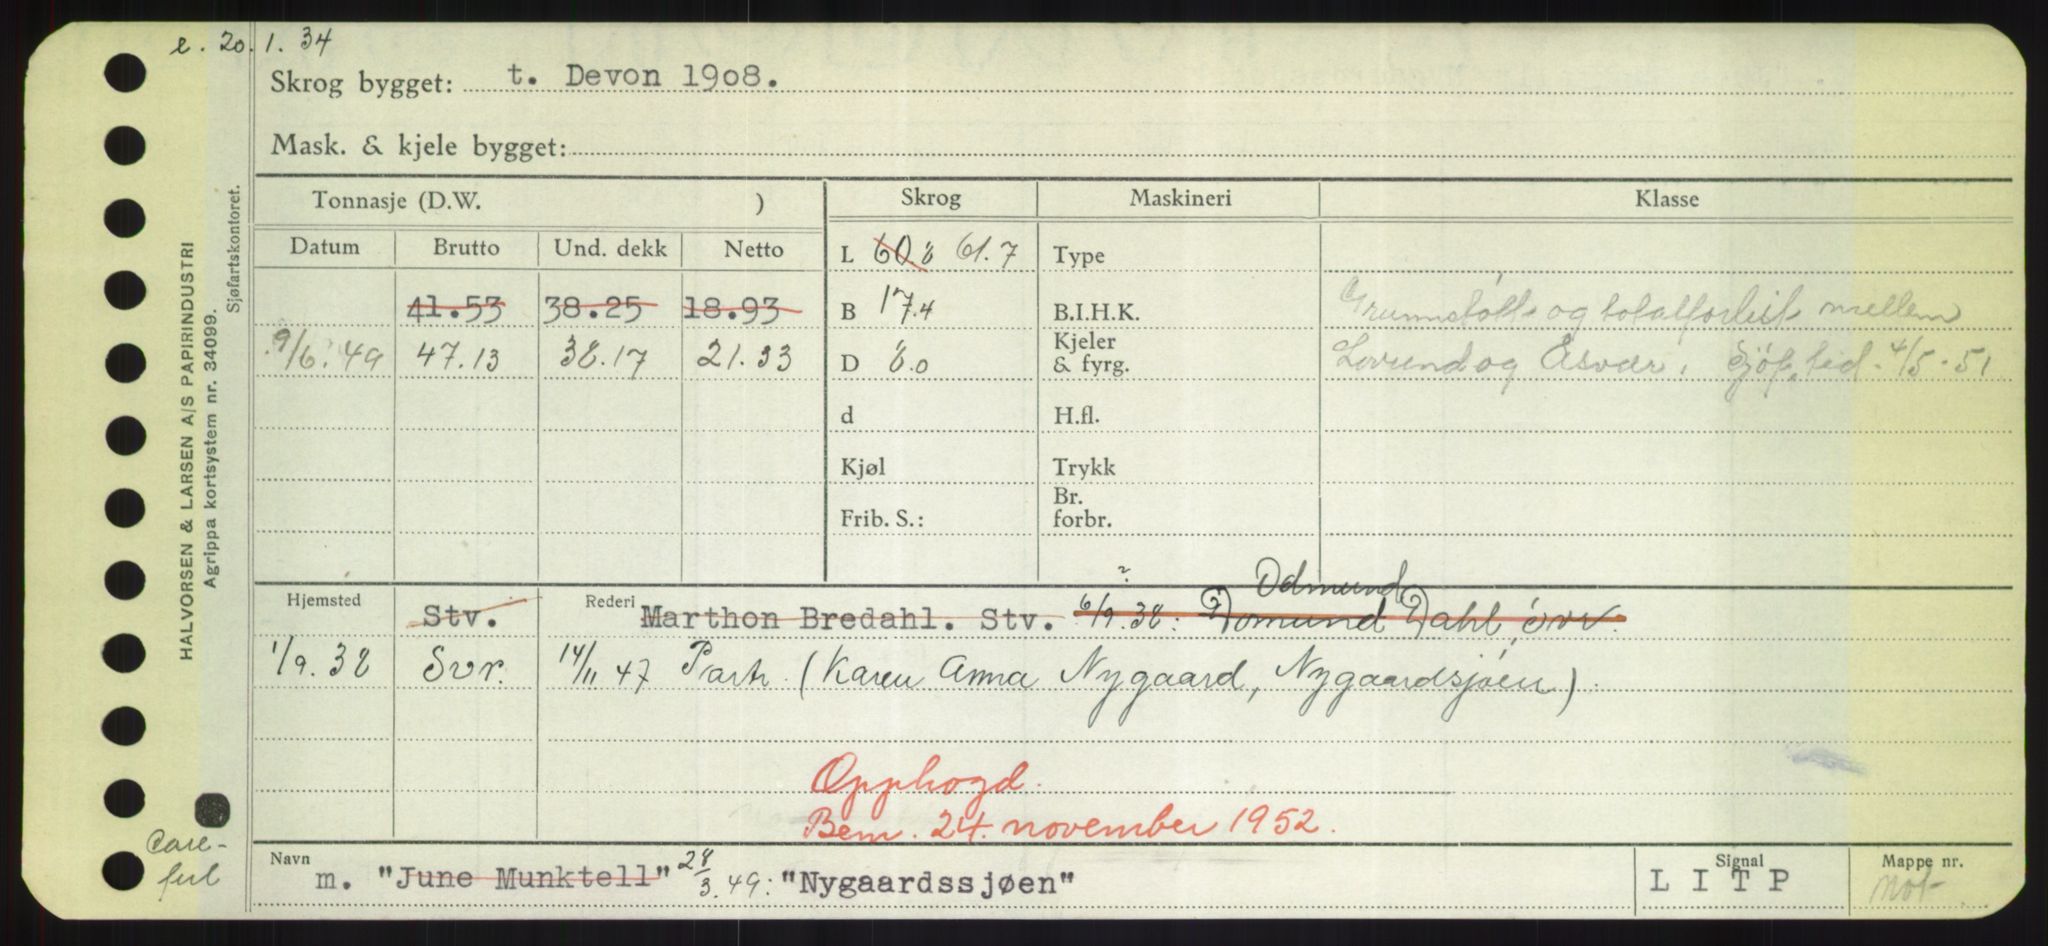 e. 20. 1. 34
Skrog bygget: t. Devon 1908.
Mask. & kjele bygget:
HALVORSEN & LARSEN A/S PAPIRINDUSTRI
Agrippa kortsystem nr. 34099.
Sjøfartskontoret.
Tonnasje (D.W. ) Skrog Maskineri Klasse
Datum Brutto Und. dekk Netto L 60.8 61.7 Type
41.53 38.25 18.93 B 17.4 B.I.H.K. Grunnstøtt og totalforlist mellem
9/6. 49 47.13 38.17 21.33 D 8.0 Kjeler & fyrg. Lovund og Åsvær. Sjøf. tid. 4/5-51
d H.fl.
Kjøl Trykk
Frib. S.: Br. forbr.
? Odmund
Hjemsted Stv. Rederi Marthon Bredahl. Stv. 6/9.38: Domund Dahl, svr.
1/9.38 Svr. 14/11 47 Partr. (Karen Anna Nygaard, Nygaardsjøen).
Opphogd.
Bem. 24. november 1952.
Care-
ful
Navn m. "June Munktell" 28/3.49: "Nygaardssjøen" Signal L I T P Mappe nr. Mot